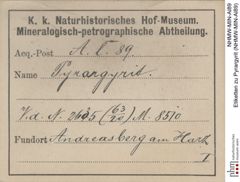 K. k. Naturhistorisches Hof-Museum.
Mineralogisch-petrographische Abtheilung.
Acq.-Post A. V. 89
Name Pyrargyrit.
V.d. N. 2635 (63/20) M. 8510
Fundort Andreasberg am Harz
I
Etiketten zu Pyrargyrit (NHMW-MIN-A89)
NHMW-MIN-A89
nhm